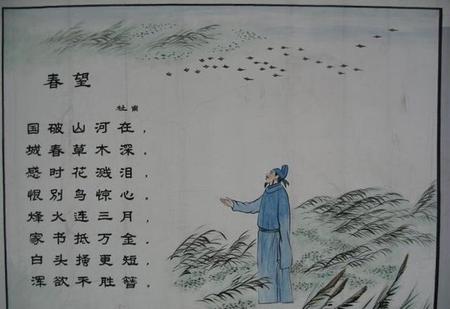 春望
杜甫
国破山河在，
城春草木深，
感时花溅泪，
恨别鸟惊心，
烽火连三月，
家书抵万金，
白头搔更短，
浑欲不胜簪，